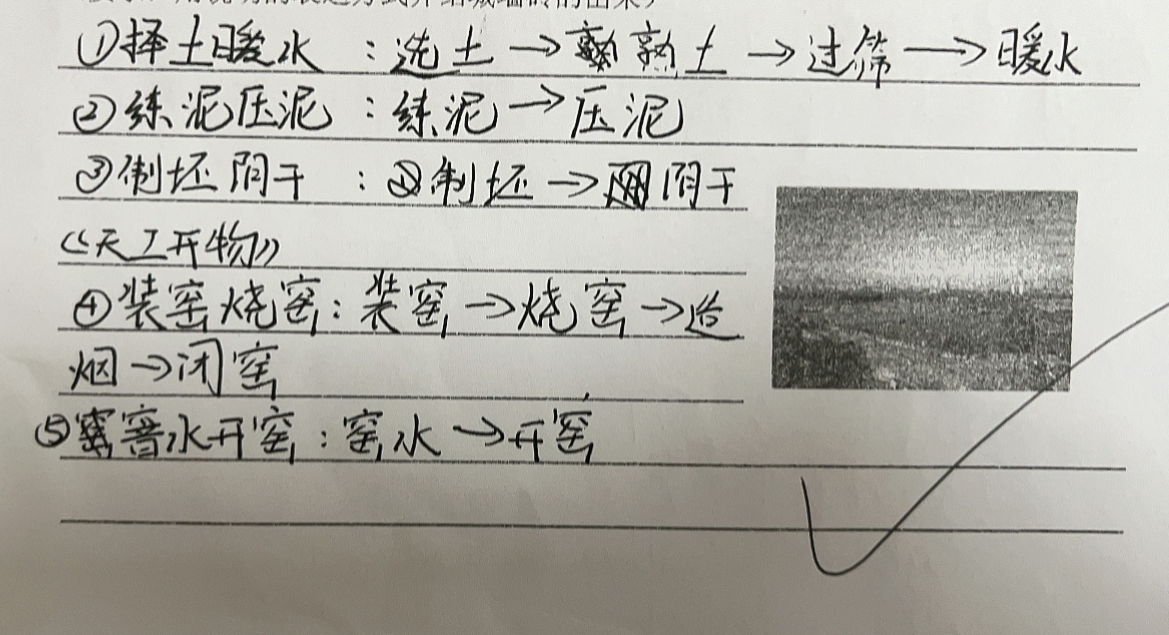 ①择土暖水：选土→熟土→过筛→暖水
②练泥压泥：练泥→压泥
③制坯阴干：制坯→阴干
《天工开物》
④装窑烧窑：装窑→烧窑→造
烟→闭窑
⑤窨水开窑：窑水→开窑